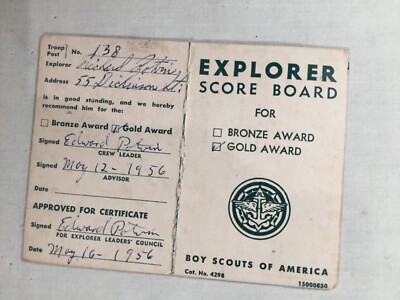 Troop
Post No. 138
Explorer Richard Potvin
Address 55 Dickinson St.
is in good standing, and we hereby
recommend him for the:
Bronze Award Gold Award
Signed Edward Potvin
CREW LEADER
Signed May 12-1956
ADVISOR
Date
APPROVED FOR CERTIFICATE
Signed Edward Potvin
FOR EXPLORER LEADERS' COUNCIL
Date May 16-1956
EXPLORER
SCORE BOARD
FOR
BRONZE AWARD
GOLD AWARD
BOY SCOUTS OF AMERICA
Cat. No. 4298
15000850